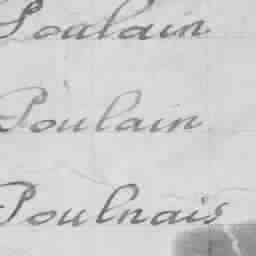 Poulain
Poulain
Poulnais